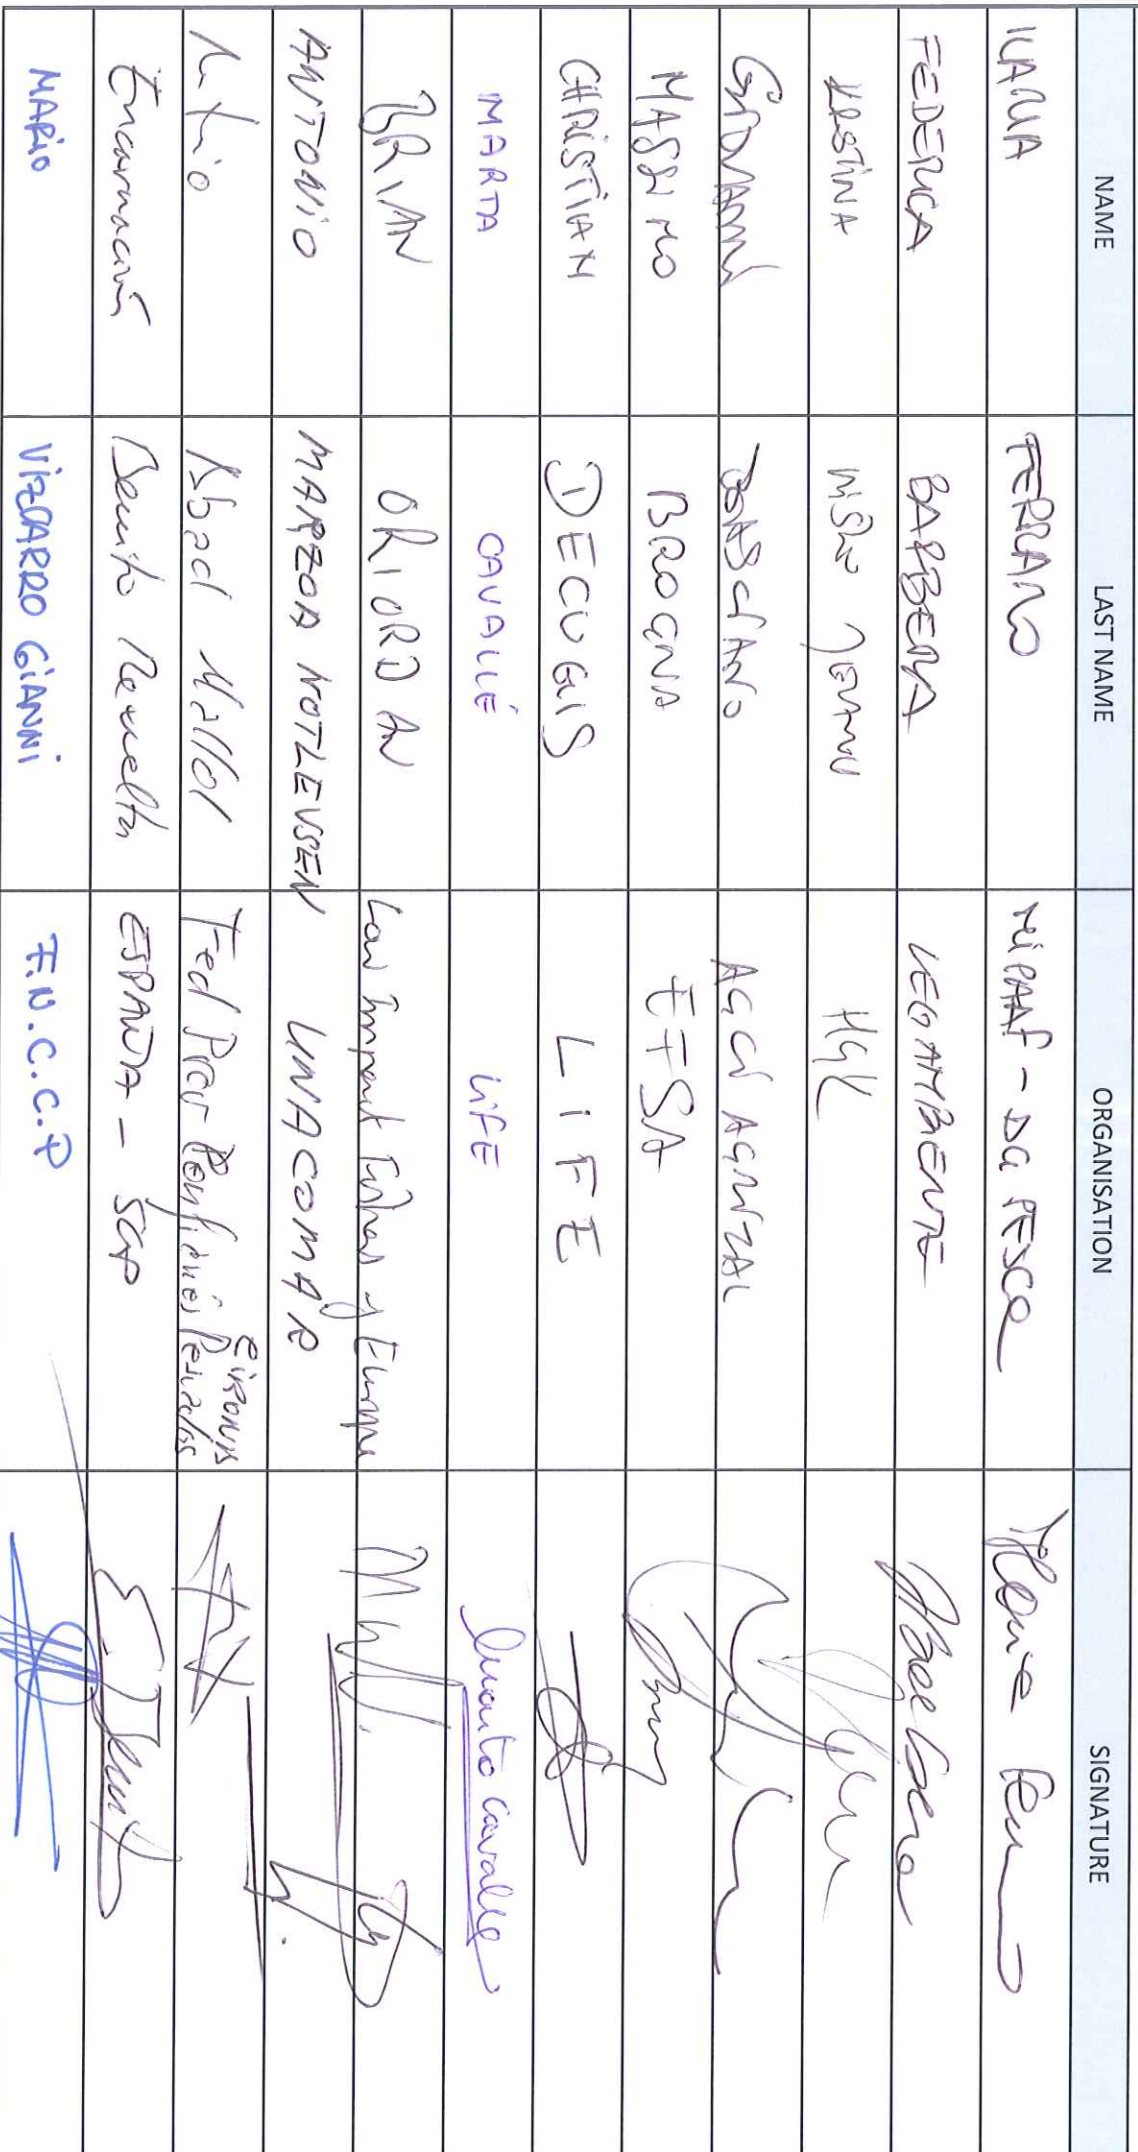 NAME LAST NAME ORGANISATION SIGNATURE
ILARIA FERRARO MIPAAF - DG PESCA
FEDERICA BARBERA LEGAMBIENTE
KRSTINA MISLOV JELAVIĆ HGK
GIOVANNI BASCIANO AGCI AGRITAL
MASSIMO BROGNA EFSA
CHRISTIAN DECUGIS LIFE
MARTA CAVALLÉ LIFE Marta Cavallé
BRIAN O RIORDAN Low Impact Fishers of Europe
ANTONIO MARZOA NOTLEVSEN UNACOMAR
Antonio Abad Mallol Fed Prov Confraries Pescadors GIRONA
Encarnación Benito Revuelta ESPAÑA - SGP
MARIO VIZCARRO GIANNI F.N.C.C.P